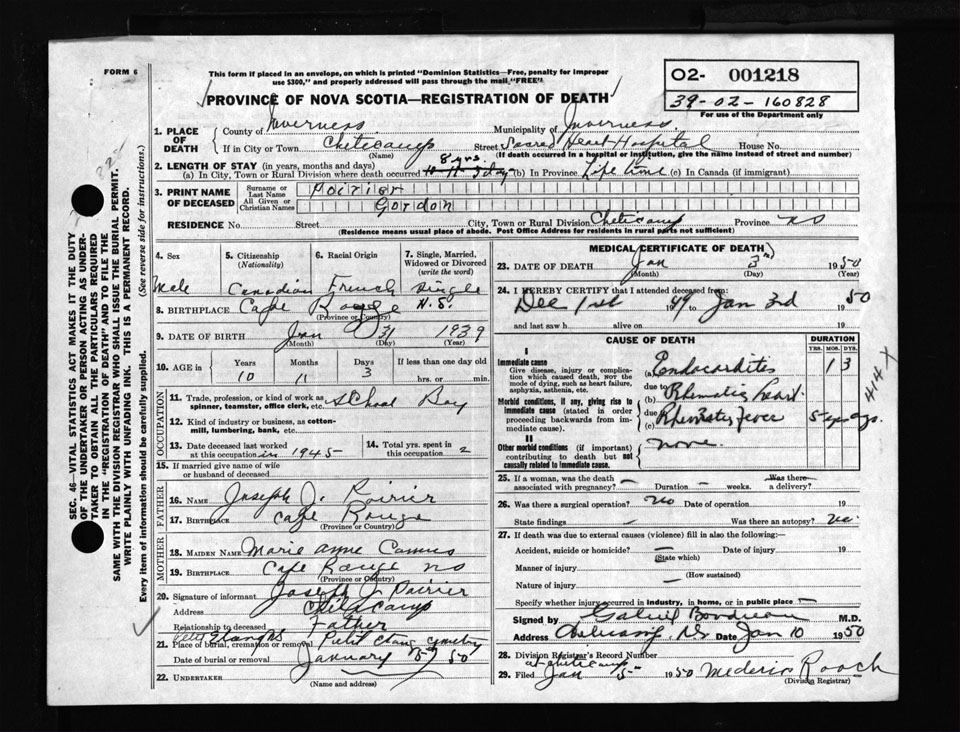 FORM 6
This form if placed in an envelope, on which is printed "Dominion Statistics—Free, penalty for improper
use $300," and properly addressed will pass through the mail "FREE"
PROVINCE OF NOVA SCOTIA—REGISTRATION OF DEATH
O2- 001218
39-02-160828
For use of the Department only
SEC. 46—VITAL STATISTICS ACT MAKES IT THE DUTY
OF THE UNDERTAKER OR PERSON ACTING AS UNDER-
TAKER TO OBTAIN ALL THE PARTICULARS REQUIRED
IN THE "REGISTRATION OF DEATH" AND TO FILE THE
SAME WITH THE DIVISION REGISTRAR WHO SHALL ISSUE THE BURIAL PERMIT.
WRITE PLAINLY WITH UNFADING INK. THIS IS A PERMANENT RECORD.
Every item of information should be carefully supplied. (See reverse side for instructions.)
1. PLACE OF DEATH
County of Inverness Municipality of Inverness
If in City or Town Cheticamp Street Sacred Heart Hospital House No.
(Name) (If death occurred in a hospital or institution, give the name instead of street and number)
2. LENGTH OF STAY (in years, months and days) 8 yrs.
(a) In City, Town or Rural Division where death occurred (b) In Province Life time (c) In Canada (if immigrant)
3. PRINT NAME OF DECEASED
Surname or Last Name Poirier
All Given or Christian Names Gordon
RESIDENCE No. Street City, Town or Rural Division Cheticamp Province NS
(Residence means usual place of abode. Post Office Address for residents in rural parts not sufficient)
4. Sex 5. Citizenship (Nationality) 6. Racial Origin 7. Single, Married, Widowed or Divorced (write the word)
Male Canadian French Single
8. BIRTHPLACE Cape Rouge N.S.
(Province or Country)
9. DATE OF BIRTH Jan 31 1939
(Month) (Day) (Year)
10. AGE in Years Months Days If less than one day old
10 11 3 hrs. or min.
OCCUPATION
11. Trade, profession, or kind of work as spinner, teamster, office clerk, etc. School Boy
12. Kind of industry or business, as cotton-mill, lumbering, bank, etc.
13. Date deceased last worked at this occupation in 1945
14. Total yrs. spent in this occupation 2
15. If married give name of wife or husband of deceased
FATHER
16. NAME Joseph J. Poirier
17. BIRTHPLACE Cape Rouge
(Province or Country)
MOTHER
18. MAIDEN NAME Marie Anne Camus
19. BIRTHPLACE Cape Rouge NS
(Province or Country)
20. Signature of informant Joseph J. Poirier
Address Cheticamp
Relationship to deceased Father
Petit Etang NS
21. Place of burial, cremation or removal Petit Etang cemetery
Date of burial or removal January 5 1950
22. UNDERTAKER
(Name and address)
MEDICAL CERTIFICATE OF DEATH
23. DATE OF DEATH Jan 3rd 1950
(Month) (Day) (Year)
24. I HEREBY CERTIFY that I attended deceased from:
Dec 1st 1949 to Jan 3rd 1950
and last saw h alive on 19
CAUSE OF DEATH DURATION
YRS. MOS. DYS.
I
Immediate cause
Give disease, injury or complication which caused death, NOT the mode of dying, such as heart failure, asphyxia, asthenia, etc.
(a) Endocarditis 1 3
due to
Morbid conditions, if any, giving rise to immediate cause (stated in order proceeding backwards from immediate cause).
(b) Rhematic heart
due to
(c) Rhematic fever 5 yrs ago.
II
Other morbid conditions (if important) contributing to death but not causally related to immediate cause.
none.
414 X
25. If a woman, was the death associated with pregnancy? — Duration — weeks. Was there a delivery?
26. Was there a surgical operation? No Date of operation 19
State findings — Was there an autopsy? No
27. If death was due to external causes (violence) fill in also the following:
Accident, suicide or homicide? — Date of injury 19
(State which)
Manner of injury
(How sustained)
Nature of injury —
Specify whether injury occurred in industry, in home, or in public place —
Signed by Gabriel Boudreau M.D.
Address NS Date Jan 10 1950
28. Division Registrar's Record Number
at Cheticamp
29. Filed Jan 5 1950 Mederic Roach
(Division Registrar)